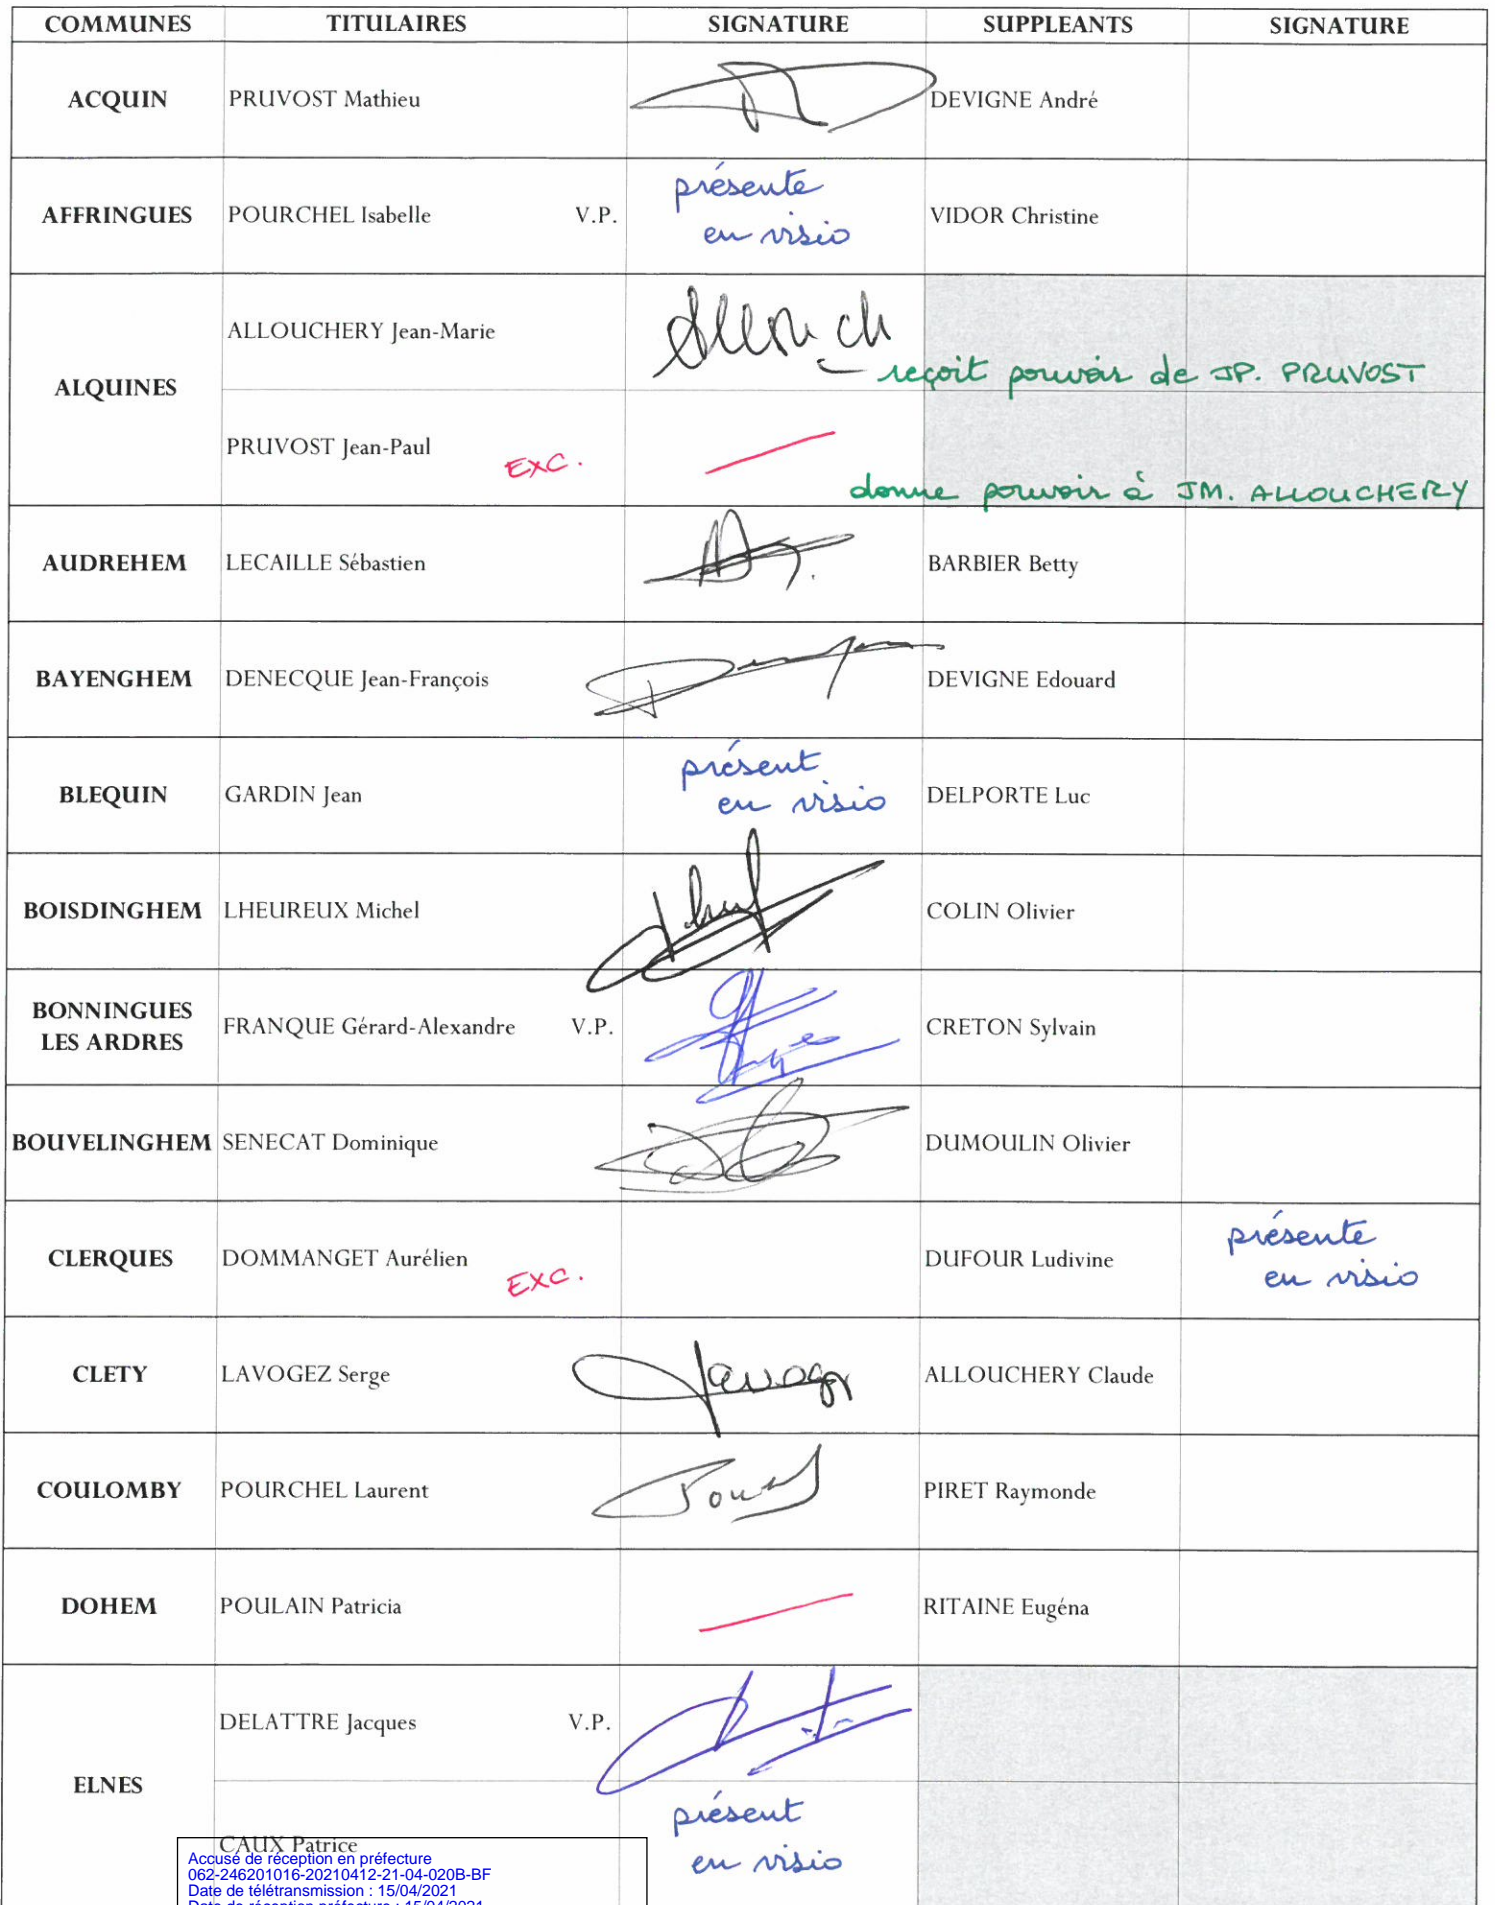 COMMUNES TITULAIRES SIGNATURE SUPPLEANTS SIGNATURE
ACQUIN PRUVOST Mathieu DEVIGNE André
AFFRINGUES POURCHEL Isabelle V.P. présente en visio VIDOR Christine
ALQUINES
ALLOUCHERY Jean-Marie Allouch
reçoit pouvoir de JP. PRUVOST
PRUVOST Jean-Paul EXC.
donne pouvoir à JM. ALLOUCHERY
AUDREHEM LECAILLE Sébastien BARBIER Betty
BAYENGHEM DENECQUE Jean-François DEVIGNE Edouard
BLEQUIN GARDIN Jean présent en visio DELPORTE Luc
BOISDINGHEM LHEUREUX Michel COLIN Olivier
BONNINGUES
LES ARDRES
FRANQUE Gérard-Alexandre V.P. CRETON Sylvain
BOUVELINGHEM SENECAT Dominique DUMOULIN Olivier
CLERQUES DOMMANGET Aurélien EXC. DUFOUR Ludivine présente en visio
CLETY LAVOGEZ Serge ALLOUCHERY Claude
COULOMBY POURCHEL Laurent PIRET Raymonde
DOHEM POULAIN Patricia RITAINE Eugéna
ELNES
DELATTRE Jacques V.P.
CAUX Patrice présent en visio
Accusé de réception en préfecture
062-246201016-20210412-21-04-020B-BF
Date de télétransmission : 15/04/2021
Date de réception préfecture : 15/04/2021